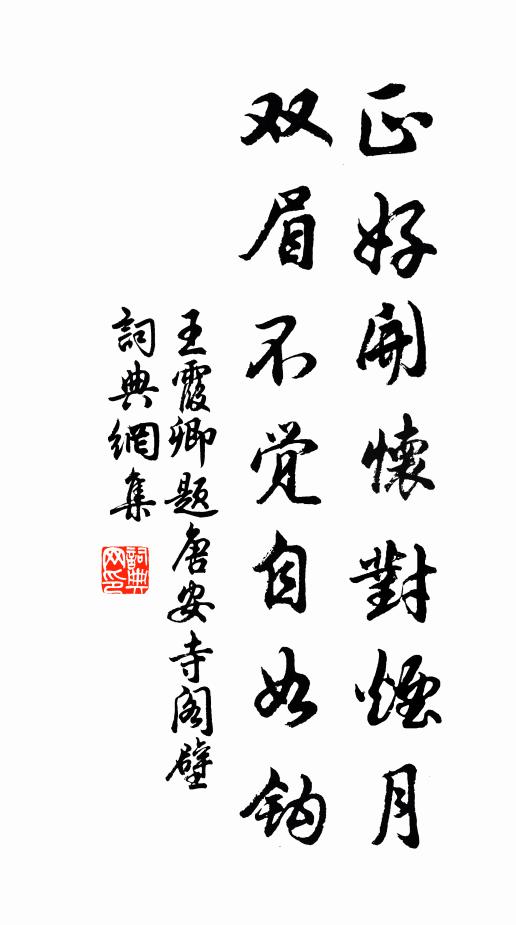 正好開懷對煙月
双眉不觉自如钩
王霞卿题唐安寺阁壁
詞典網集
詞典网印